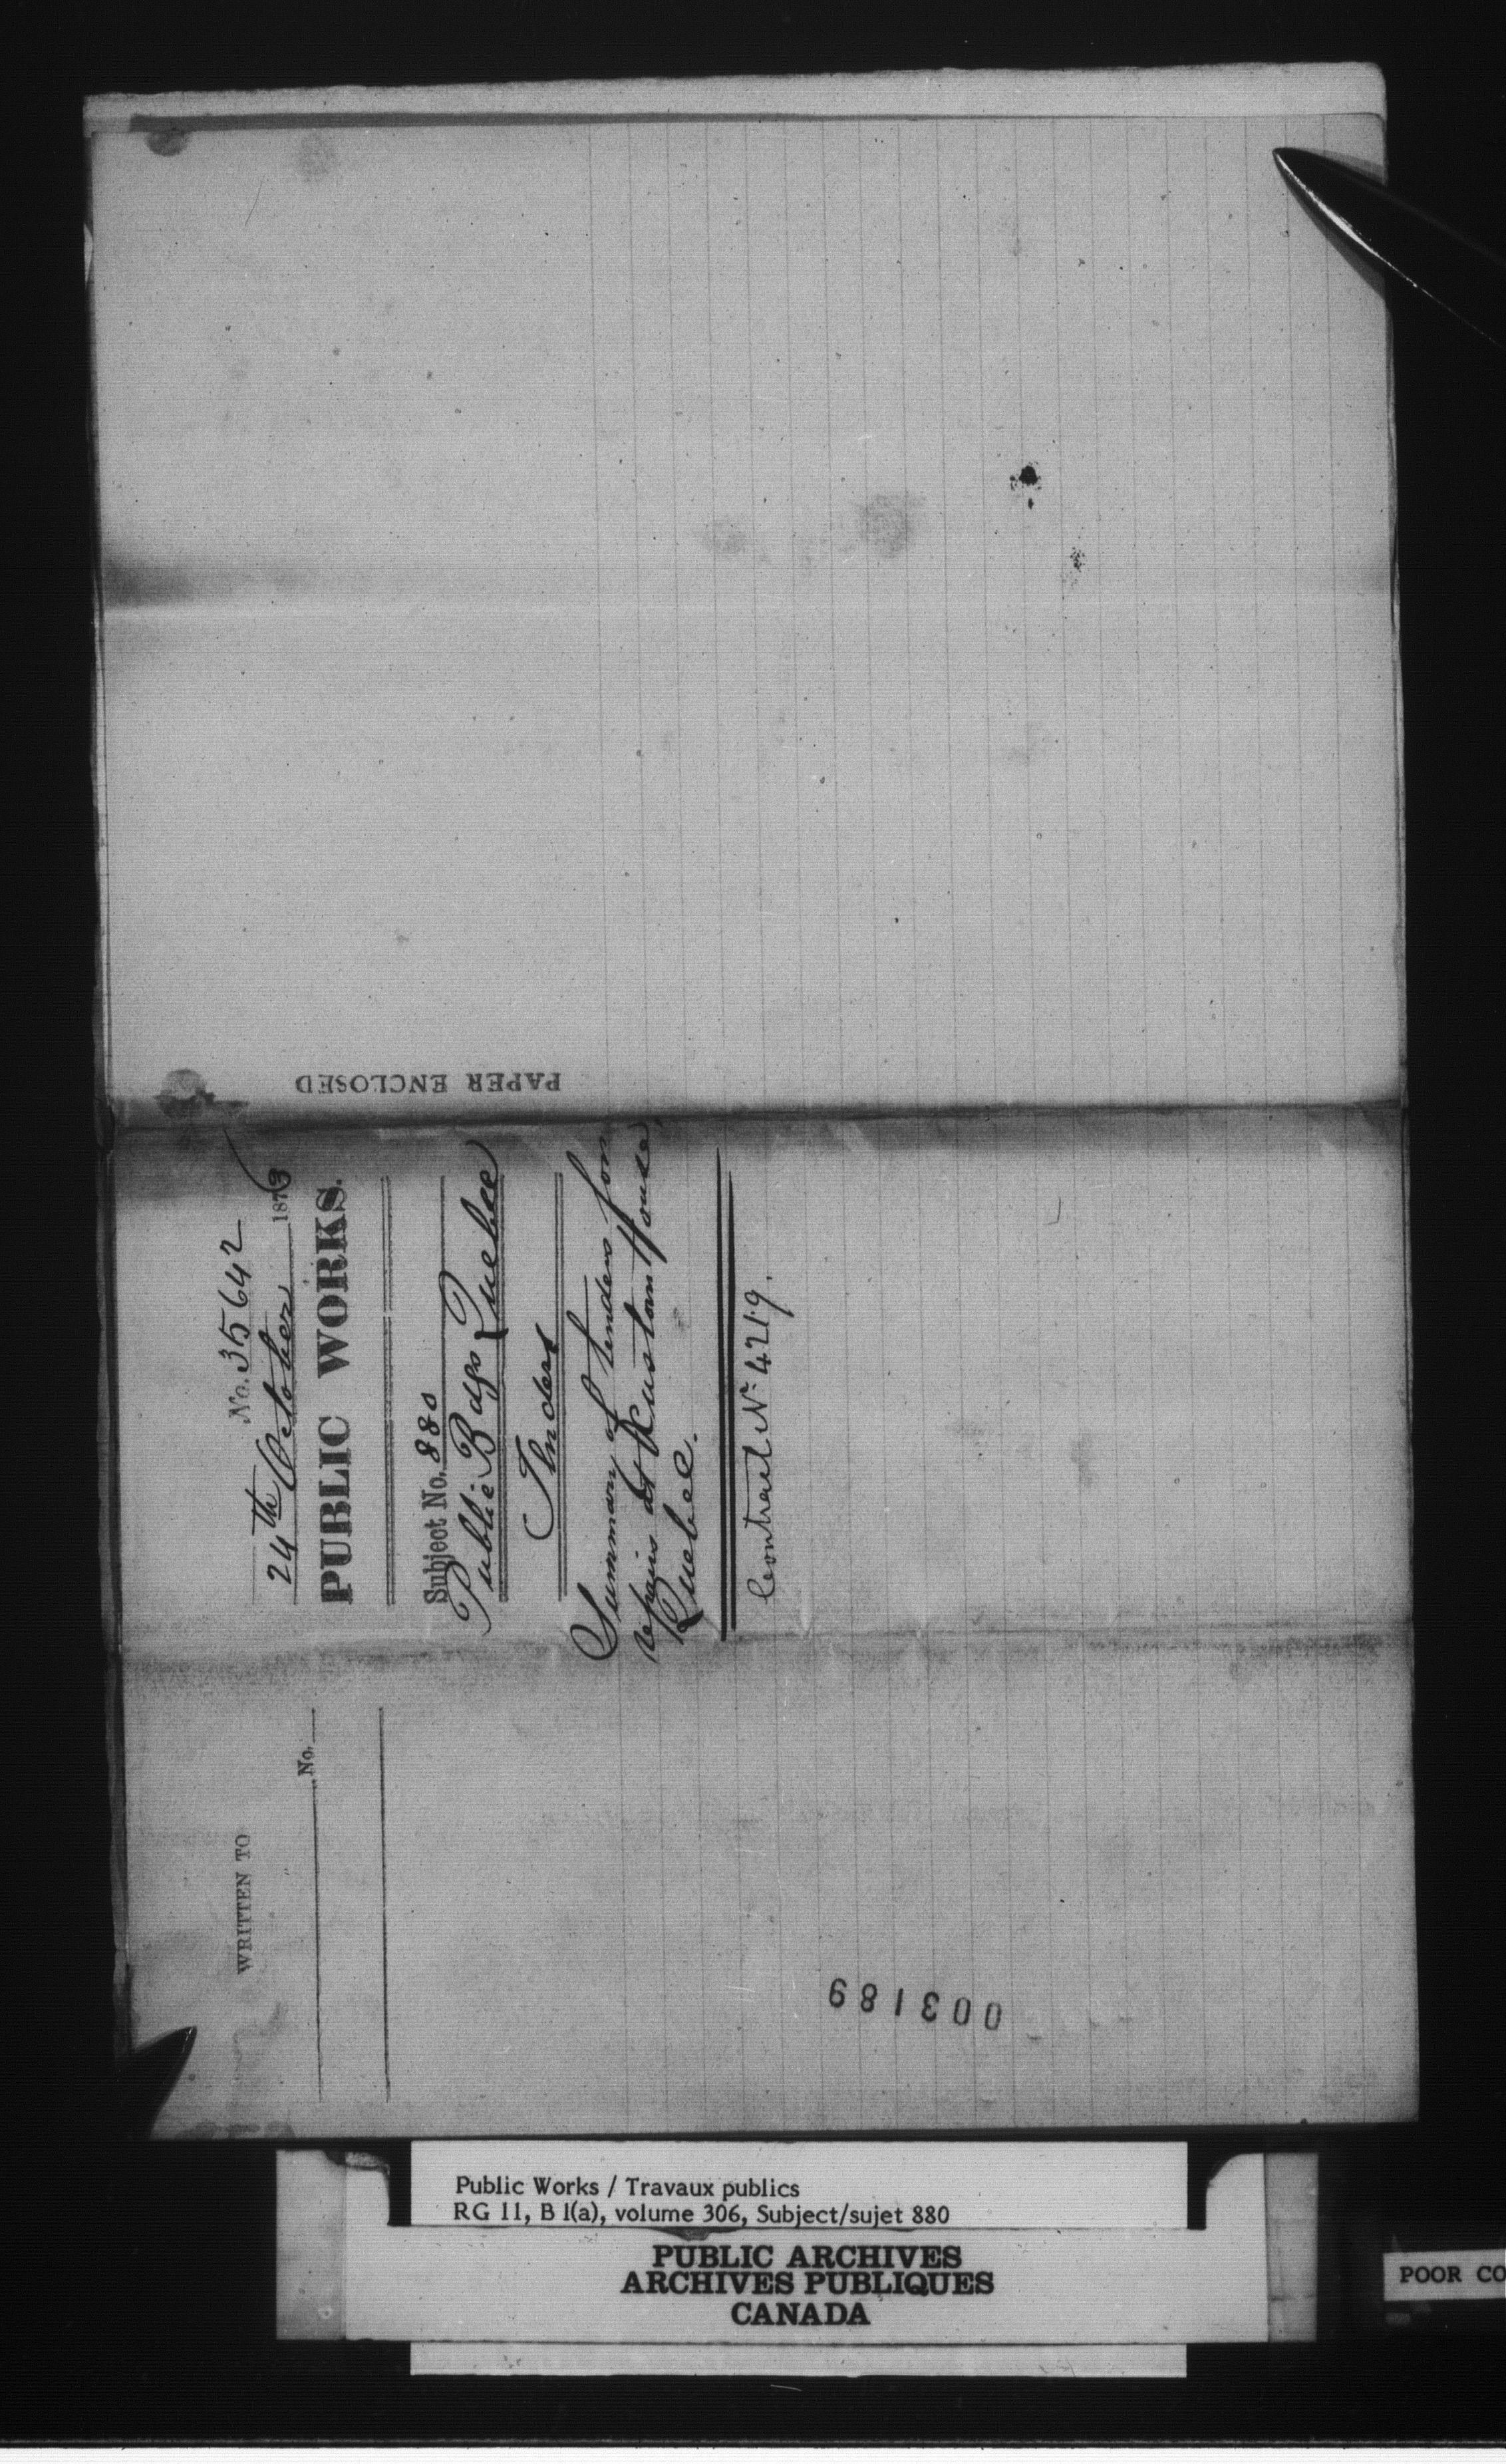 PAPER ENCLOSED
No. 35642
24th October 1873
PUBLIC WORKS.
Subject No. 880
Public Bdgs Quebec
Tenders
Summary of tenders for
repairs at Custom House,
Quebec.
Contract No. 4219.
WRITTEN TO
No.
003189
Public Works / Travaux publics
RG 11, B 1(a), volume 306, Subject/sujet 880
PUBLIC ARCHIVES
ARCHIVES PUBLIQUES
CANADA
POOR CO